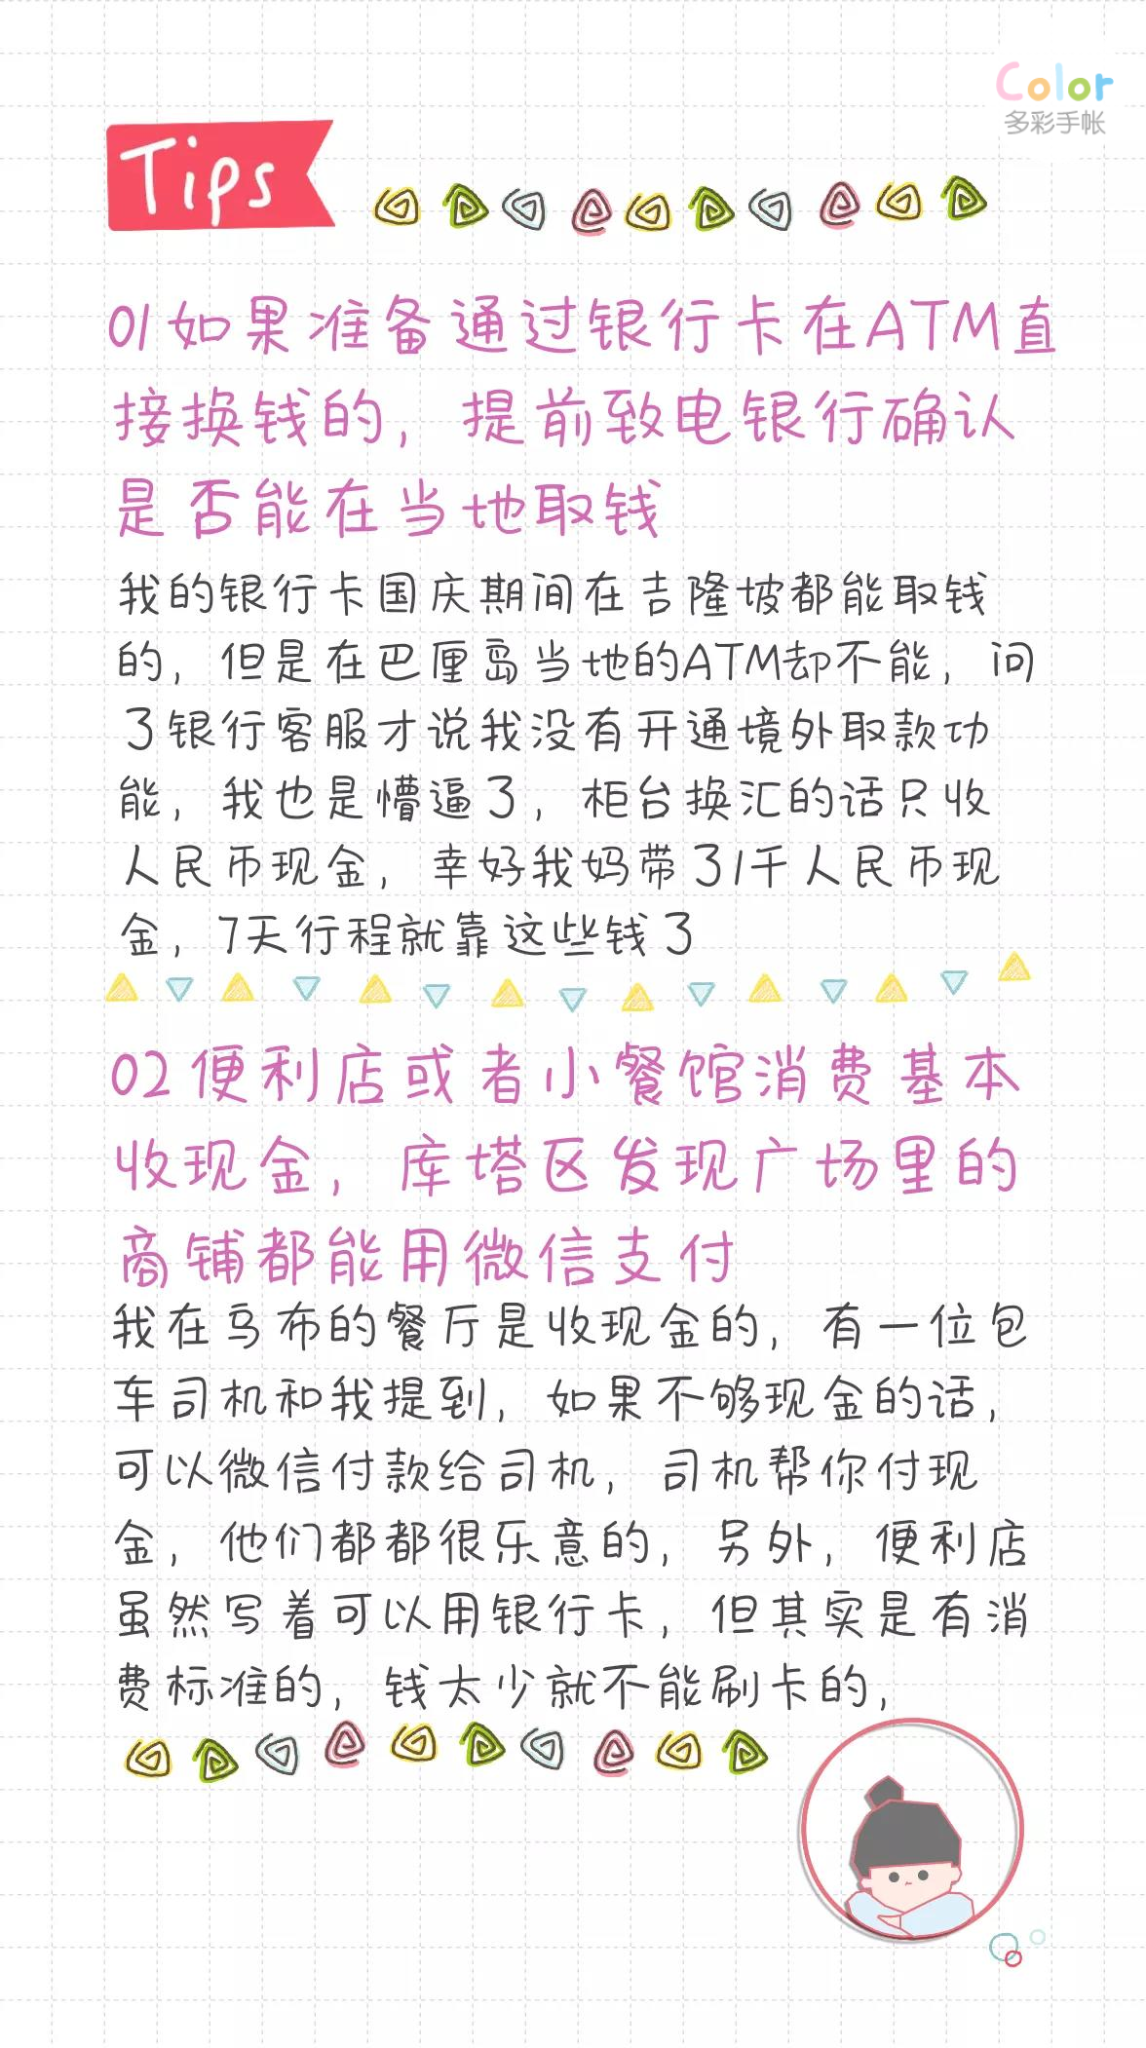 Color
多彩手帐
Tips
01如果准备通过银行卡在ATM直
接换钱的，提前致电银行确认
是否能在当地取钱
我的银行卡国庆期间在吉隆坡都能取钱
的，但是在巴厘岛当地的ATM却不能，问
了银行客服才说我没有开通境外取款功
能，我也是懵逼了，柜台换汇的话只收
人民币现金，幸好我妈带了1千人民币现
金，7天行程就靠这些钱了
02便利店或者小餐馆消费基本
收现金，库塔区发现广场里的
商铺都能用微信支付
我在乌布的餐厅是收现金的，有一位包
车司机和我提到，如果不够现金的话，
可以微信付款给司机，司机帮你付现
金，他们都都很乐意的，另外，便利店
虽然写着可以用银行卡，但其实是有消
费标准的，钱太少就不能刷卡的，